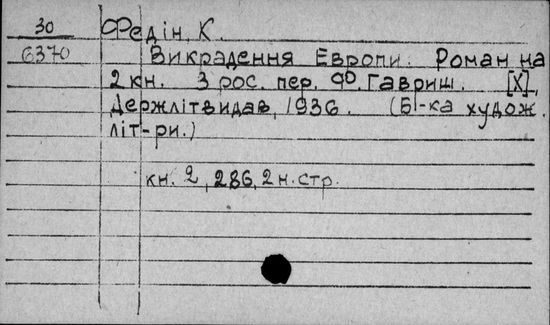 30
6370
Федін, К.
Викрадення Европи. Роман на
2 кн. З рос. пер. Ф. Гавриш. [Х],
Держлітвидав, 1936. (Б-ка худож.
літ-ри.)
кн. 2, 286, 2 н. стр.